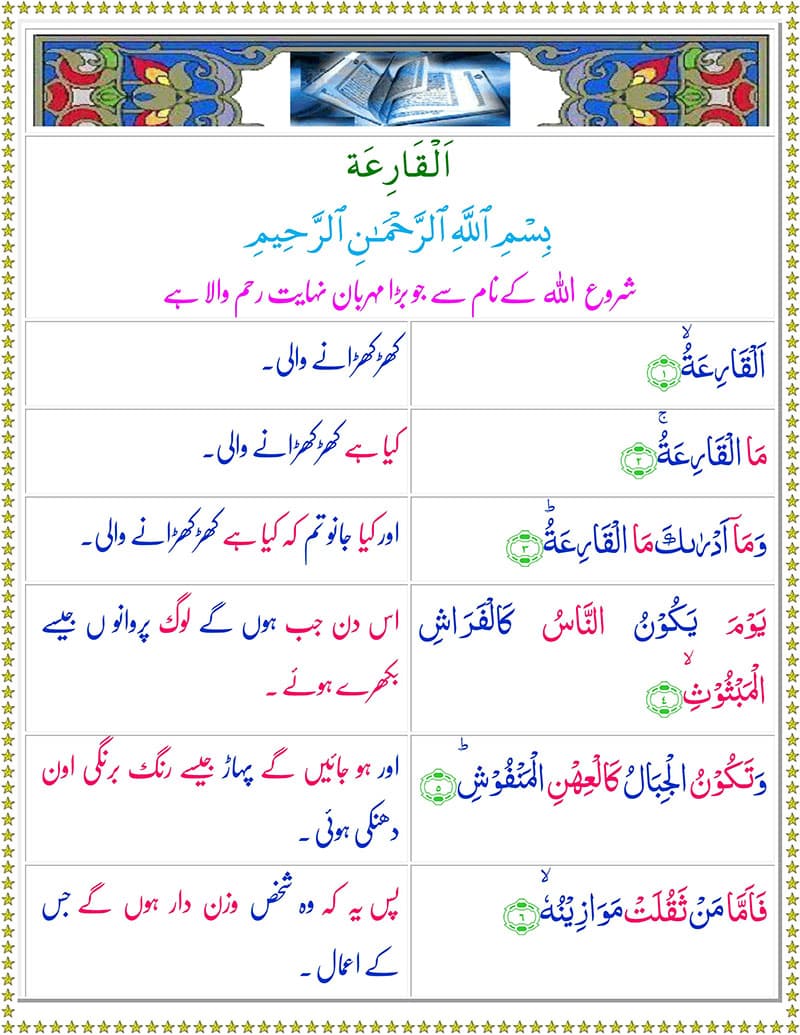 اَلْقَارِعَة
بِسْمِ ٱللَّهِ ٱلرَّحْمَـٰنِ ٱلرَّحِيمِ
شروع اللہ کے نام سے جو بڑا مہربان نہایت رحم والا ہے
اَلْقَارِعَةُۙ ١
کھڑکھڑانے والی۔
مَا الْقَارِعَةُۚ ٢
کیا ہے کھڑکھڑانے والی۔
وَمَاۤ اَدْرٰىكَ مَا الْقَارِعَةُؕ ٣
اور کیا جانو تم کہ کیا ہے کھڑکھڑانے والی۔
يَوْمَ يَكُوْنُ النَّاسُ كَالْفَرَاشِ
الْمَبْثُوْثِۙ ٤
اس دن جب ہوں گے لوگ پروانو ں جیسے
بکھرے ہوئے ۔
وَتَكُوْنُ الْجِبَالُ كَالْعِهْنِ الْمَنْفُوْشِؕ ٥
اور ہو جائیں گے پہاڑ جیسے رنگ برنگی اون
دھنکی ہوئی ۔
فَاَمَّا مَنْ ثَقُلَتْ مَوَازِيْنُهٗۙ ٦
پس یہ کہ وہ شخص وزن دار ہوں گے جس
کے اعمال ۔